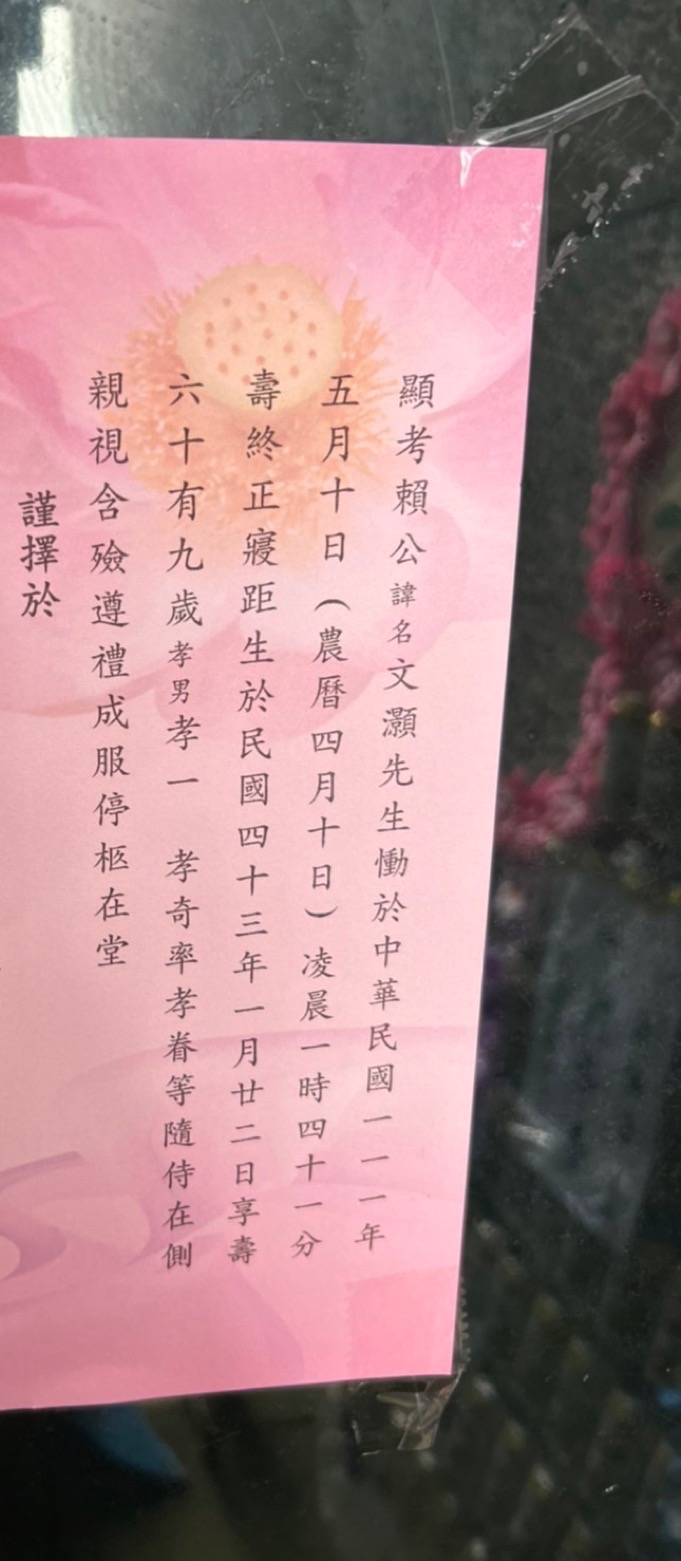 顯考賴公諱名文灝先生慟於中華民國一一一年
五月十日(農曆四月十日)凌晨一時四十一分
壽終正寢距生於民國四十三年一月廿二日享壽
六十有九歲孝男孝一 孝奇率孝眷等隨侍在側
親視含殮遵禮成服停柩在堂
謹擇於